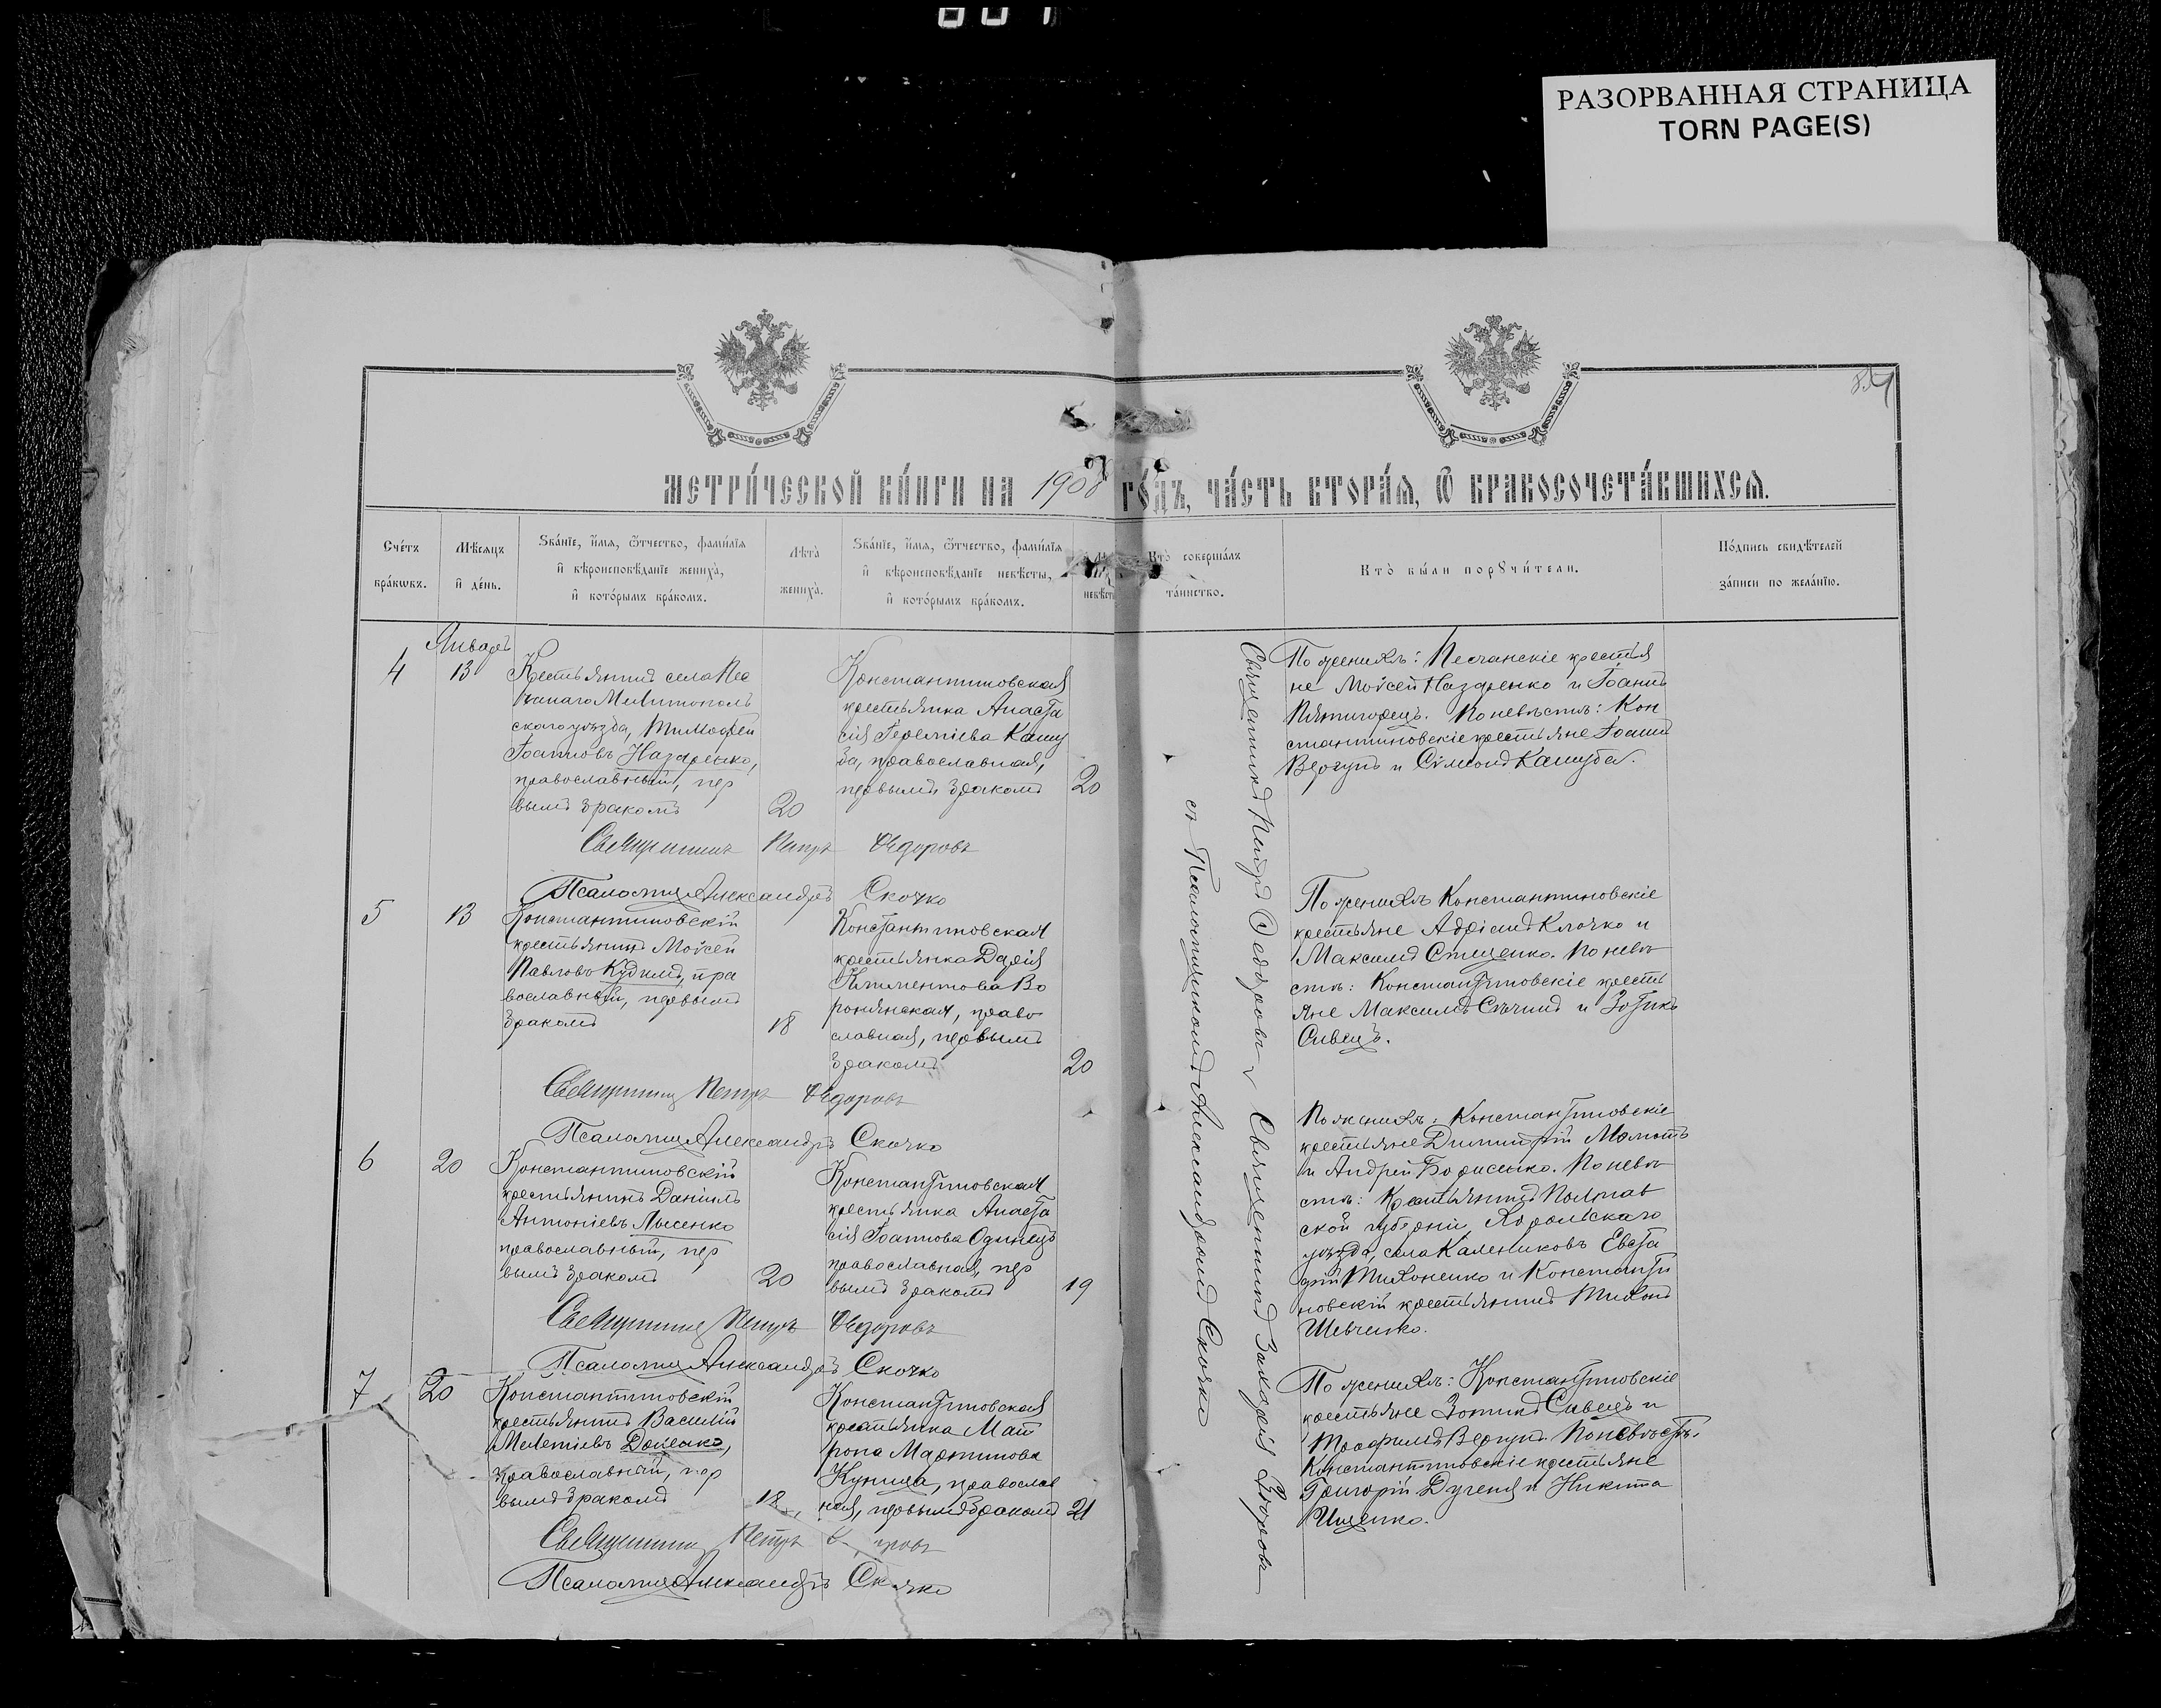 РАЗОРВАННАЯ СТРАНИЦА
TORN PAGE(S)
МЕТРИ́ЧЕСКОЙ КН́ИГИ НА 1908 ГО́ДЪ, ЧА́СТЬ ВТОРА́Ѧ, Ѿ БРАКОСОЧЕТА́ВШИХСѦ.
Сче́тъ
бра́кѡвъ.
Мѣ́сѧцъ
и҆ де́нь.
Зва́нїе, и҆́мѧ, ѻ҆́тчество, фами́лїѧ
и҆ вѣроисповѣ́данїе жениха̀,
и҆ кото́рымъ бра́комъ.
Лѣ́та
жениха̀.
Зва́нїе, и҆́мѧ, ѻ҆́тчество, фами́лїѧ
и҆ вѣроисповѣ́данїе невѣ́сты,
и҆ кото́рымъ бра́комъ.
невѣст
Кто̀ соверша́лъ
та́инство.
Кто̀ бы́ли порꙋчи́тели.
По́дпись свидѣ́телей
за́писи по жела́нїю.
Январь
4
13
Крестьянинъ села Пес
чанаго Мелитополь
скаго уѣзда, Тимофей
Іоанновъ Назаренко,
православный, пер
вымъ бракомъ
20
Константиновская
крестьянка Анаста
сія Іереміева Кашу
ба, православная,
первымъ бракомъ
20
По женихѣ: Песчанскіе крестья
не Моѵсей Назаренко и Іоаннъ
Пятигорецъ. По невѣстѣ: Кон
стантиновскіе крестьяне Іоаннъ
Вергунъ и Сѵмеонъ Кашуба.
Священникъ Петръ Ѳедоровъ
Псаломщ Александръ Скочко
5
13
Константиновскій
крестьянинъ Моѵсей
Павловъ Кудимъ, пра
вославный, первымъ
бракомъ
18
Константиновская
крестьянка Дарія
Климентова Во
ронянская, право
славная, первымъ
бракомъ
20
По женихѣ Константиновскіе
крестьяне Адріанъ Клочко и
Максимъ Стиценко. По невѣ
стѣ: Константиновскіе кресть
яне Максимъ Съчинъ и Зотикъ
Сивецъ.
Священник Петръ Ѳедоровъ
Псаломщ Александръ Скочко
6
20
Константиновскій
крестьянинъ Даніилъ
Антоніевъ Лысенко
православный, пер
вымъ бракомъ
20
Константиновская
крестьянка Анаста
сія Іоаннова Одинецъ
православная, пер
вымъ бракомъ
19
По женихѣ: Константиновскіе
крестьяне Димитрій Момотъ
и Андрей Борисенко. По невѣ
стѣ: Крестьянинъ Полтав
ской губерніи, Хорольскаго
уѣзда, села Калениковъ Евста
фій Тихоненко и Константи
новскій крестьянинъ Тихонъ
Шевченко.
Священник Петръ Ѳедоровъ
Псаломщ Александръ Скочко
7
20
Константиновскій
крестьянинъ Василій
Мелетіевъ Доценко,
православный, пер
вымъ бракомъ
18
Константиновская
крестьянка Мат
рона Мартинова
Куница, православ
ная, первымъ бракомъ
21
По женихѣ: Константиновскіе
крестьяне Зотикъ Сивецъ и
Трофимъ Вергунъ. По невѣстѣ:
Константиновскіе крестьяне
Григорій Дугеня и Никита
Ищенко.
Священник Петръ
Псаломщ Александръ Скочко
Священникъ Петръ Ѳедоровъ и Священникъ Захарій Егоровъ
съ Псаломщикомъ Александромъ Скочко